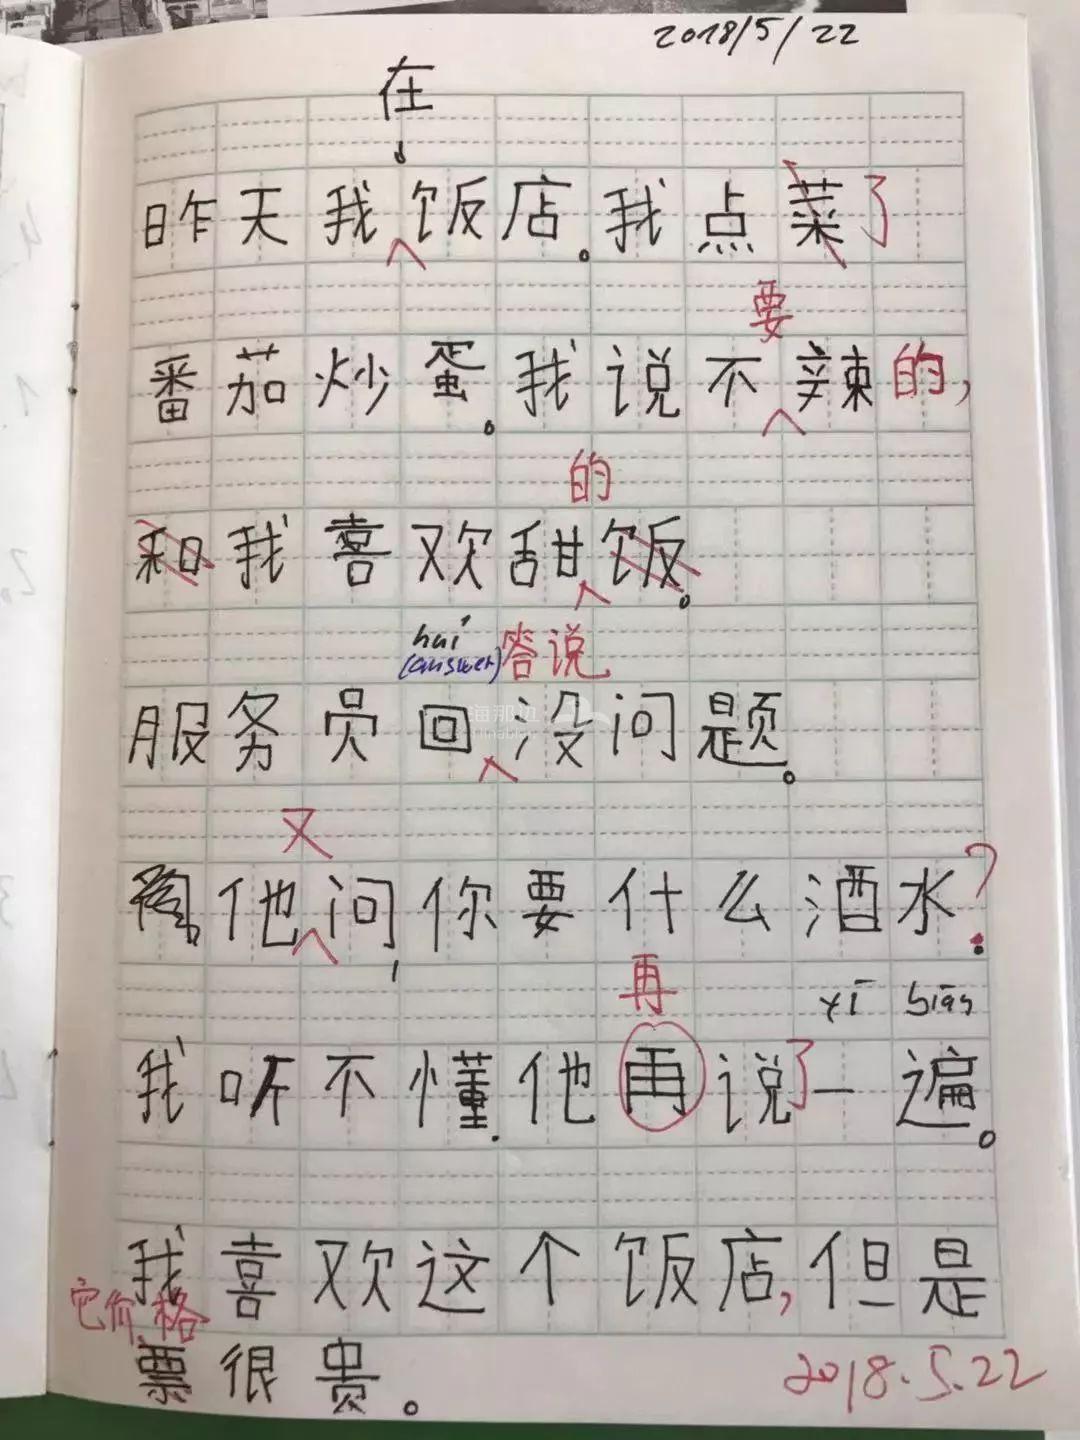 2018/5/22
在
昨天我饭店。我点菜了
要
番茄炒蛋。我说不辣的,
的
和我喜欢甜饭。
huí
(answer) 答说
服务员回没问题。
又
他问,你要什么酒水?
再 yī biàn
我听不懂.他再说了一遍。
我喜欢这个饭店,但是
它价格
票很贵。
2018.5.22